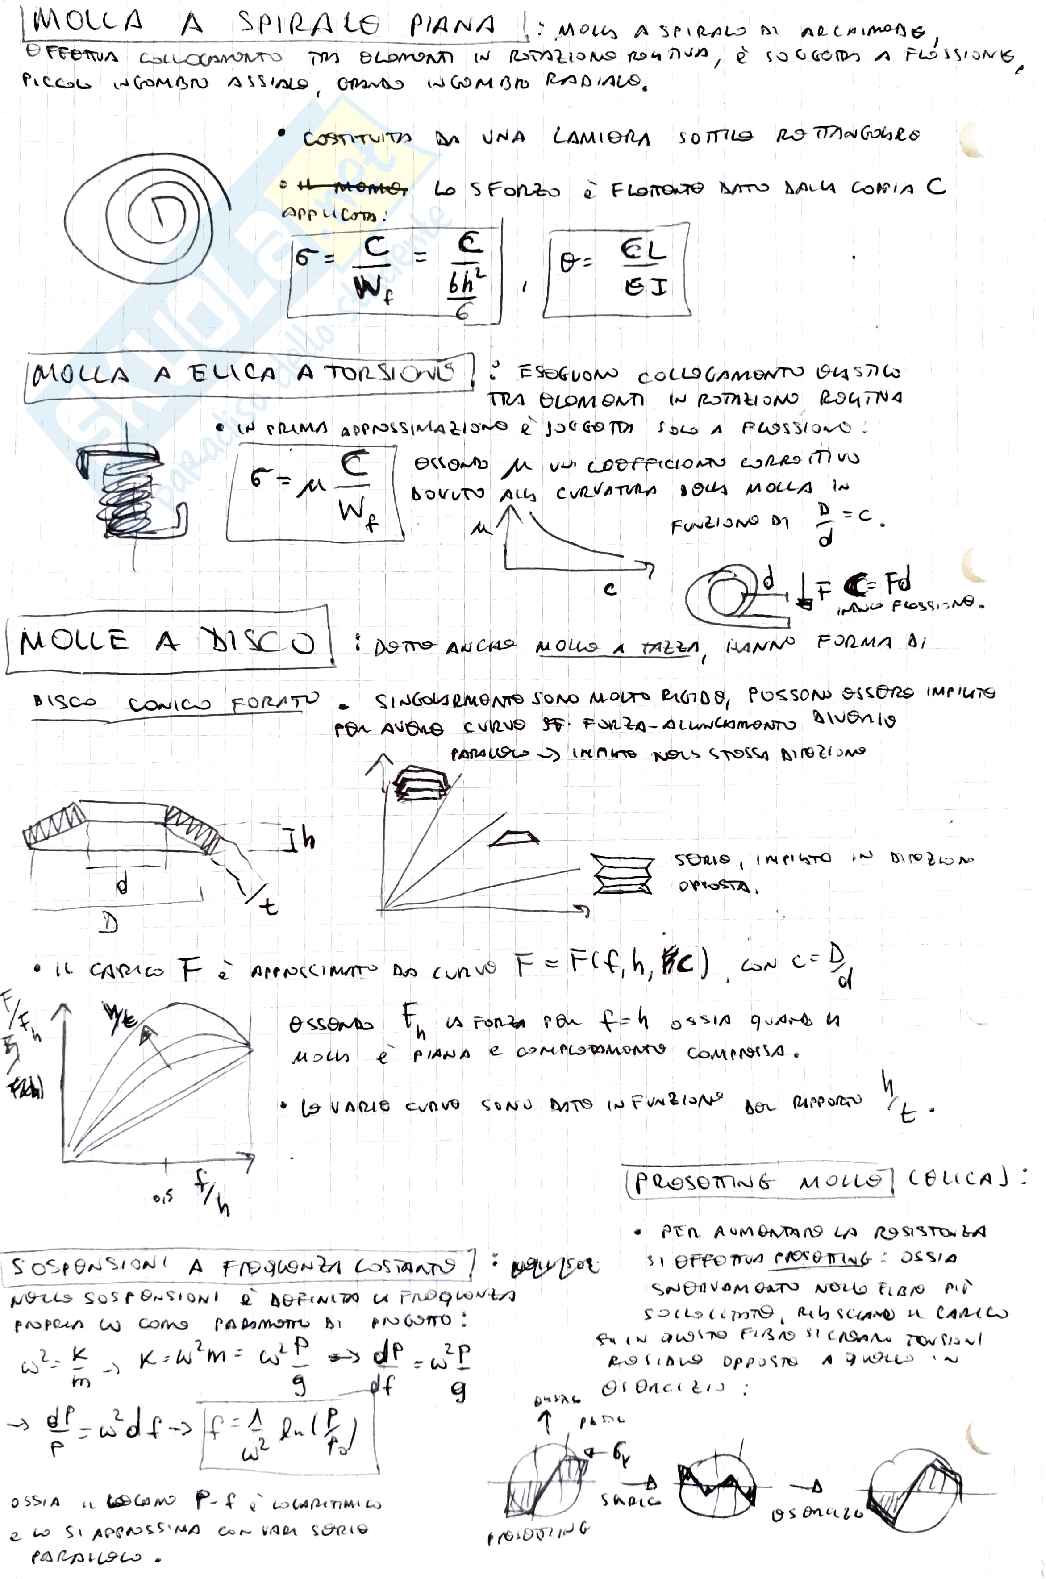 MOLLA A SPIRALE PIANA : MOLLA A SPIRALE DI ARCHIMEDE,
EFFETTUA COLLEGAMENTO TRA ELEMENTI IN ROTAZIONE RELATIVA, È SOGGETTA A FLESSIONE,
PICCOLO INGOMBRO ASSIALE, GRANDE INGOMBRO RADIALE.
• COSTITUITA DA UNA LAMIERA SOTTILE RETTANGOLARE
• IL MOME. LO SFORZO È FLETTENTE DATO DALLA COPPIA C
APPLICATA:
σ = C/W_f = C/(bh²/6) , θ = CL/EI
MOLLA A ELICA A TORSIONE : ESEGUONO COLLEGAMENTO ELASTICO
TRA ELEMENTI IN ROTAZIONE RELATIVA
• IN PRIMA APPROSSIMAZIONE È SOGGETTA SOLO A FLESSIONE:
σ = μ C/W_f
ESSENDO μ UN COEFFICIENTE CORRETTIVO
DOVUTO ALLA CURVATURA DELLA MOLLA IN
FUNZIONE DI D/d = C.
μ
C
d F C = Fd
FLESSIONE.
MOLLE A DISCO : DETTE ANCHE MOLLE A TAZZA, HANNO FORMA DI
DISCO CONICO FORATO. SINGOLARMENTE SONO MOLTO RIGIDE, POSSONO ESSERE IMPILATE
PER AVERE CURVE FORZA-ALLUNGAMENTO DIVERSE
PARALLELO → IMPILATE NELLA STESSA DIREZIONE
h
d
D
t
SERIE, IMPILATE IN DIREZIONE
OPPOSTA.
• IL CARICO F È APPROSSIMATO DA CURVE F = F(f, h, C), CON C = D/d
F/F_h
h/t
0,5 f/h
ESSENDO F_h LA FORZA PER f=h OSSIA QUANDO LA
MOLLA È PIANA E COMPLETAMENTE COMPRESSA.
• LE VARIE CURVE SONO DATE IN FUNZIONE DEL RAPPORTO h/t.
PRESETTING MOLLE (ELICA):
• PER AUMENTARE LA RESISTENZA
SI EFFETTUA PRESETTING: OSSIA
SNERVAMENTO NELLE FIBRE PIÙ
SOLLECITATE, RILASCIANDO IL CARICO
IN QUESTE FIBRE SI CREANO TENSIONI
RESIDUE OPPOSTE A QUELLE IN
ESERCIZIO:
PLASTIC
σ_y
PRESETTING
SCARICO
ESERCIZIO
SOSPENSIONI A FREQUENZA COSTANTE :
NELLE SOSPENSIONI È DEFINITA LA FREQUENZA
PROPRIA ω COME PARAMETRO DI PROGETTO:
ω² = K/m → K = ω²m = ω² P/g → dP/df = ω² P/g
→ dP/P = ω² df → f = 1/ω² ln(P/P₀)
OSSIA IL LEGAME P-f È LOGARITMICO
E LO SI APPROSSIMA CON VARI SERIE
PARALLELO.